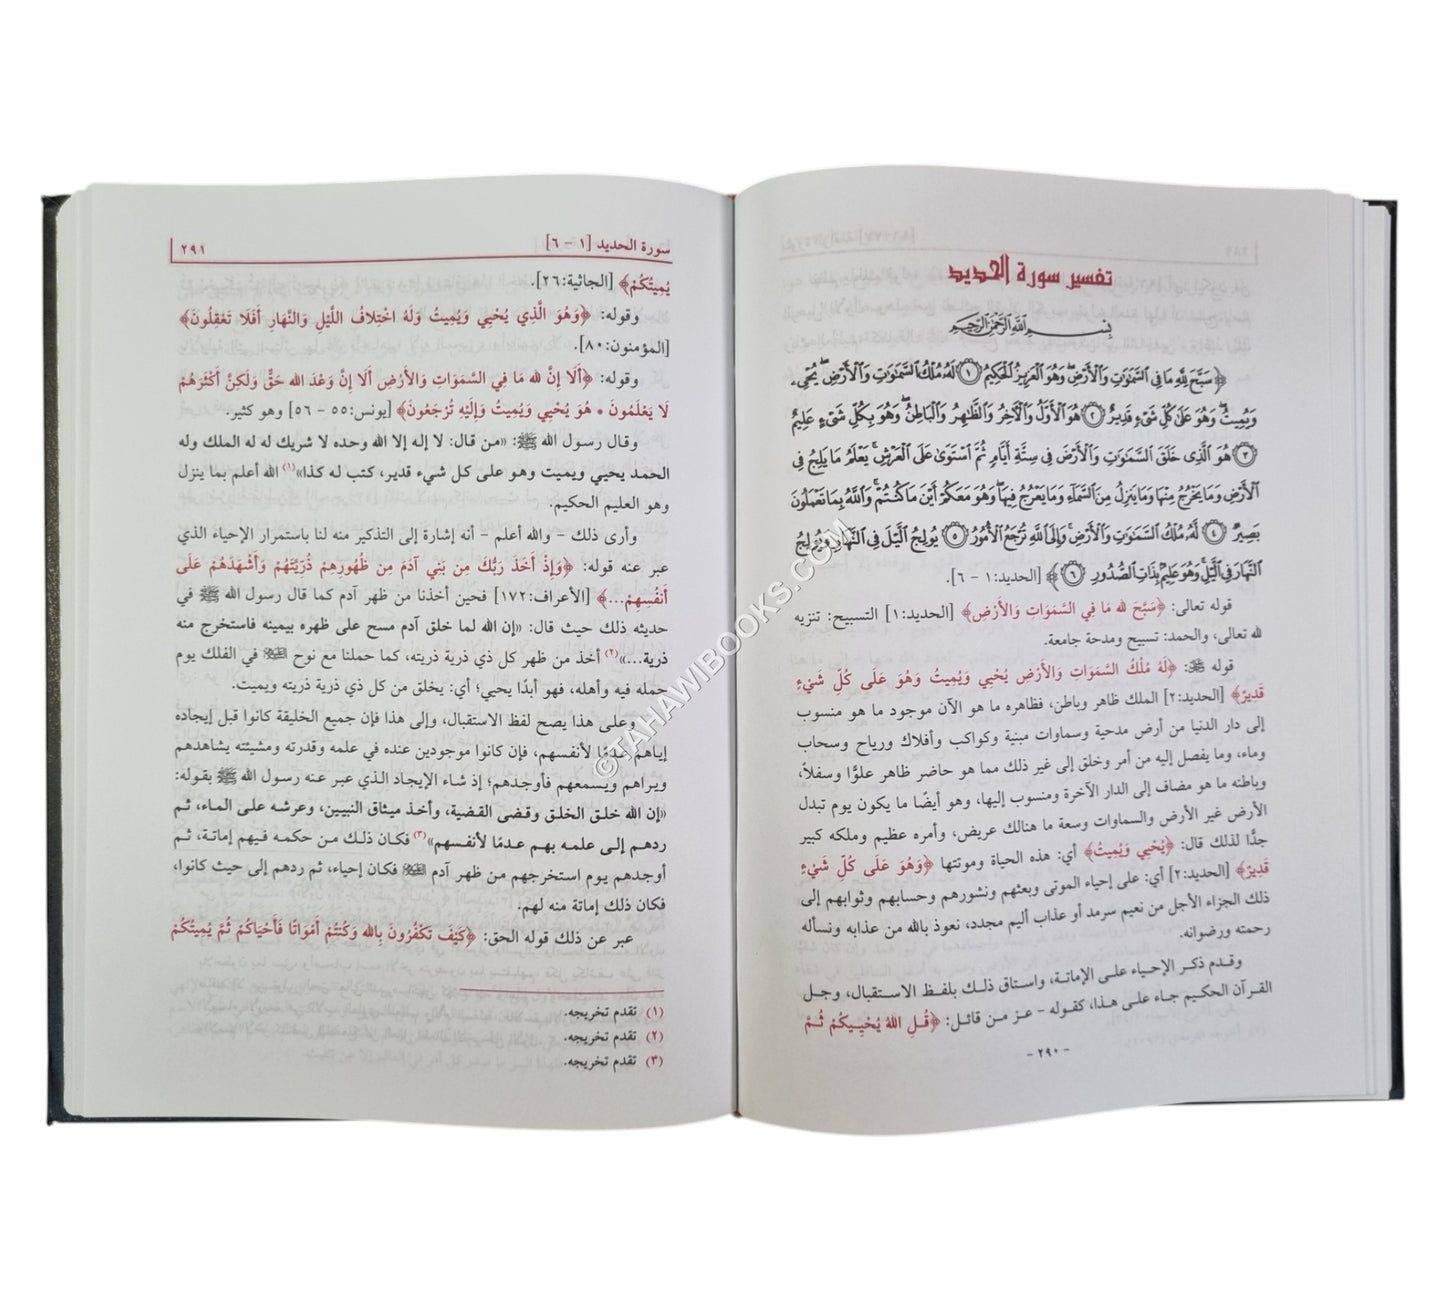 تفسير سورة الحديد
بِسْمِ اللَّهِ الرَّحْمَٰنِ الرَّحِيمِ
﴿سَبَّحَ لِلَّهِ مَا فِي السَّمَٰوَٰتِ وَالْأَرْضِ وَهُوَ الْعَزِيزُ الْحَكِيمُ ١ لَهُ مُلْكُ السَّمَٰوَٰتِ وَالْأَرْضِ يُحْيِۦ
وَيُمِيتُ وَهُوَ عَلَىٰ كُلِّ شَيْءٍ قَدِيرٌ ٢ هُوَ الْأَوَّلُ وَالْآخِرُ وَالظَّاهِرُ وَالْبَاطِنُ وَهُوَ بِكُلِّ شَيْءٍ عَلِيمٌ
٣ هُوَ الَّذِي خَلَقَ السَّمَٰوَٰتِ وَالْأَرْضَ فِي سِتَّةِ أَيَّامٍ ثُمَّ اسْتَوَىٰ عَلَى الْعَرْشِ يَعْلَمُ مَا يَلِجُ فِي
الْأَرْضِ وَمَا يَخْرُجُ مِنْهَا وَمَا يَنزِلُ مِنَ السَّمَاءِ وَمَا يَعْرُجُ فِيهَا وَهُوَ مَعَكُمْ أَيْنَ مَا كُنتُمْ وَاللَّهُ بِمَا تَعْمَلُونَ
بَصِيرٌ ٤ لَّهُ مُلْكُ السَّمَٰوَٰتِ وَالْأَرْضِ وَإِلَى اللَّهِ تُرْجَعُ الْأُمُورُ ٥ يُولِجُ اللَّيْلَ فِي النَّهَارِ وَيُولِجُ
النَّهَارَ فِي اللَّيْلِ وَهُوَ عَلِيمٌ بِذَاتِ الصُّدُورِ ٦﴾ [الحديد:١ - ٦].
قوله تعالى: ﴿سَبَّحَ لله مَا فِي السَّمَوَاتِ وَالأَرْضِ﴾ [الحديد:١] التسبيح: تنزيه
لله تعالى، والحمد: تسبيح ومدحة جامعة.
قوله ﷻ: ﴿لَهُ مُلْكُ السَّمَوَاتِ وَالأَرْضِ يُحْيِي وَيُمِيتُ وَهُوَ عَلَى كُلِّ شَيْءٍ
قَدِيرٌ﴾ [الحديد:٢] الملك ظاهر وباطن، فظاهره ما هو الآن موجود ما هو منسوب
إلى دار الدنيا من أرض مدحية وسماوات مبنية وكواكب وأفلاك ورياح وسحاب
وماء، وما يفصل إليه من أمر وخلق إلى غير ذلك مما هو حاضر ظاهر علوًّا وسفلاً،
وباطنه ما هو مضاف إلى الدار الآخرة ومنسوب إليها، وهو أيضًا ما يكون يوم تبدل
الأرض غير الأرض والسماوات وسعة ما هنالك عريض، وأمره عظيم وملكه كبير
جدًّا لذلك قال: ﴿يُحْيِي وَيُمِيتُ﴾ أي: هذه الحياة وموتتها ﴿وَهُوَ عَلَى كُلِّ شَيْءٍ
قَدِيرٌ﴾ [الحديد:٢] أي: على إحياء الموتى وبعثهم ونشورهم وحسابهم وثوابهم إلى
ذلك الجزاء الأجل من نعيم سرمد أو عذاب أليم مجدد، نعوذ بالله من عذابه ونسأله
رحمته ورضوانه.
وقدم ذكر الإحياء على الإماتة، واستاق ذلك بلفظ الاستقبال، وجل
القرآن الحكيم جاء على هذا، كقوله - عز من قائل: ﴿قُلِ اللهُ يُحْيِيكُمْ ثُمَّ
- ٢٩٠ -
سورة الحديد [١ - ٦]
٢٩١
يُمِيتُكُمْ﴾ [الجاثية:٢٦].
وقوله: ﴿وَهُوَ الَّذِي يُحْيِي وَيُمِيتُ وَلَهُ اخْتِلَافُ اللَّيْلِ وَالنَّهَارِ أَفَلَا تَعْقِلُونَ﴾
[المؤمنون:٨٠].
وقوله: ﴿أَلَا إِنَّ لله مَا فِي السَّمَوَاتِ وَالأَرْضِ أَلَا إِنَّ وَعْدَ الله حَقٌّ وَلَكِنَّ أَكْثَرَهُمْ
لَا يَعْلَمُونَ * هُوَ يُحْيِي وَيُمِيتُ وَإِلَيْهِ تُرْجَعُونَ﴾ [يونس:٥٥ - ٥٦] وهو كثير.
وقال رسول الله ﷺ: «من قال: لا إله إلا الله وحده لا شريك له له الملك وله
الحمد يحيي ويميت وهو على كل شيء قدير، كتب له كذا»(١) الله أعلم بما ينزل
وهو العليم الحكيم.
وأرى ذلك - والله أعلم - أنه إشارة إلى التذكير منه لنا باستمرار الإحياء الذي
عبر عنه قوله: ﴿وَإِذْ أَخَذَ رَبُّكَ مِن بَنِي آدَمَ مِن ظُهُورِهِمْ ذُرِّيَّتَهُمْ وَأَشْهَدَهُمْ عَلَى
أَنفُسِهِمْ...﴾ [الأعراف:١٧٢] فحين أخذنا من ظهر آدم كما قال رسول الله ﷺ في
حديثه ذلك حيث قال: «إن الله لما خلق آدم مسح على ظهره بيمينه فاستخرج منه
ذرية...»(٢) أخذ من ظهر كل ذي ذرية ذريته، كما حملنا مع نوح ﷺ في الفلك يوم
حمله فيه وأهله، فهو أبدًا يحيي؛ أي: يخلق من كل ذي ذرية ذريته ويميت.
وعلى هذا يصح لفظ الاستقبال، وإلى هذا فإن جميع الخليقة كانوا قبل إيجاده
إياهم عدمًا لأنفسهم، فإن كانوا موجودين عنده في علمه وقدرته ومشيئته يشاهدهم
ويراهم ويسمعهم فأوجدهم؛ إذ شاء الإيجاد الذي عبر عنه رسول الله ﷺ بقوله:
«إن الله خلق الخلق وقضى القضية، وأخذ ميثاق النبيين، وعرشه على الماء، ثم
ردهم إلى علمه بهم عدمًا لأنفسهم»(٣) فكان ذلك من حكمه فيهم إماتة، ثم
أوجدهم يوم استخرجهم من ظهر آدم ﷺ فكان إحياء، ثم ردهم إلى حيث كانوا،
فكان ذلك إماتة منه لهم.
عبر عن ذلك قوله الحق: ﴿كَيْفَ تَكْفُرُونَ بِالله وَكُنتُمْ أَمْوَاتًا فَأَحْيَاكُمْ ثُمَّ يُمِيتُكُمْ
(١) تقدم تخريجه.
(٢) تقدم تخريجه.
(٣) تقدم تخريجه.
©TAHAWIBOOKS.COM